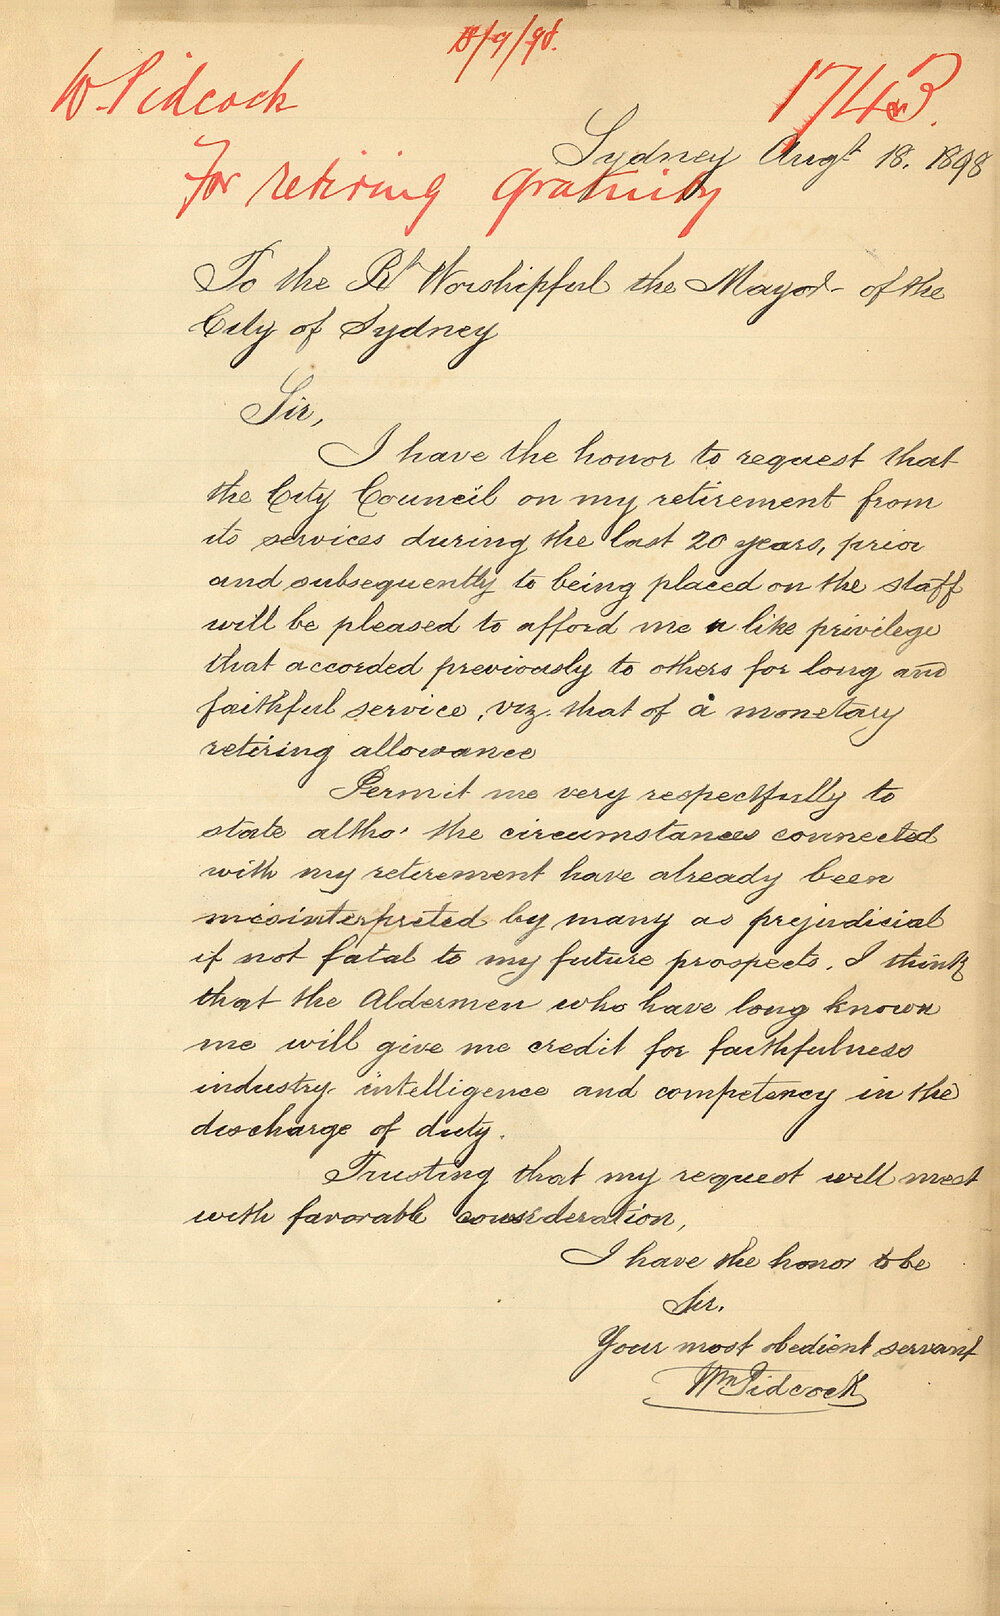 8/9/98.
W Pidcock
1743.
Sydney Augt 18. 1898
For retiring gratuity
To the Rt Worshipful the Mayor of the
City of Sydney
Sir,
I have the honor to request that
the City Council on my retirement from
its services during the last 20 years, prior
and subsequently to being placed on the staff
will be pleased to afford me a like privilege
that accorded previously to others for long and
faithful service, viz. that of a monetary
retiring allowance
Permit me very respectfully to
state altho' the circumstances connected
with my retirement have already been
misinterpreted by many as prejudicial
if not fatal to my future prospects. I think
that the Aldermen who have long known
me will give me credit for faithfulness
industry intelligence and competency in the
discharge of duty.
Trusting that my request will meet
with favorable consideration,
I have the honor to be
Sir.
Your most obedient servant
Wm Pidcock